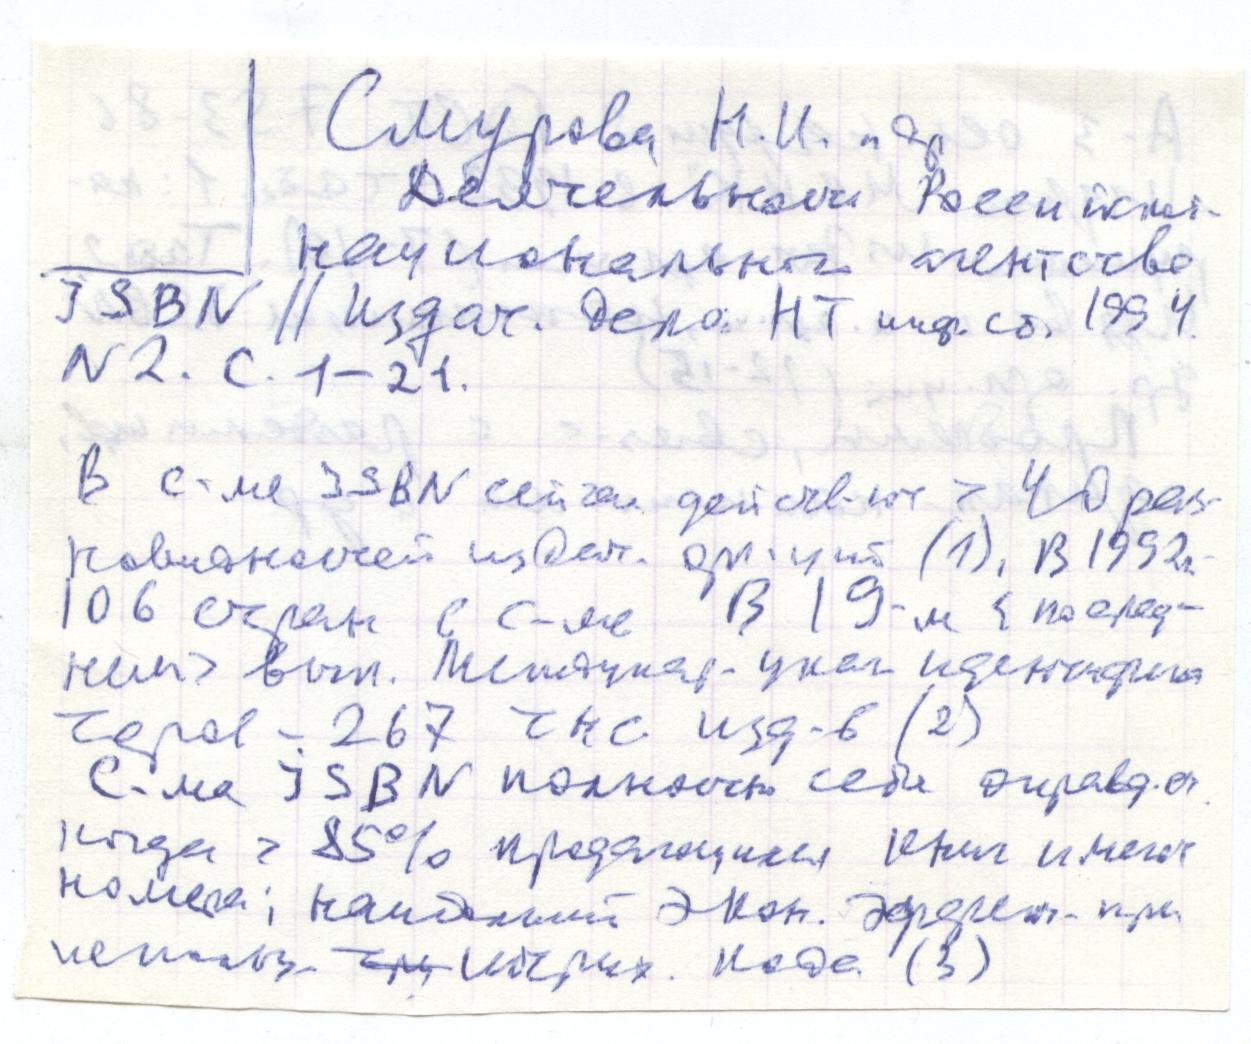 Смурова Н.И. и др
Деятельность Российск.
национального агентства
ISBN // Издат. дело. НТ инф. сб. 1994.
N 2. С. 1–21.
В с-ме ISBN сейчас действ-ют > 40 раз-
новидностей издат. (1). В 1992 г.
106 стран в с-ме В 19-м < послед-
нем> вып. Междунар. указ идентифика
торов - 267 тыс изд-в (2)
С-ма ISBN полностью себя оправд-ет
когда > 85% продающихся книг имеют
номера; наибольший экон. эффект при
использ. штрих. кода (3)